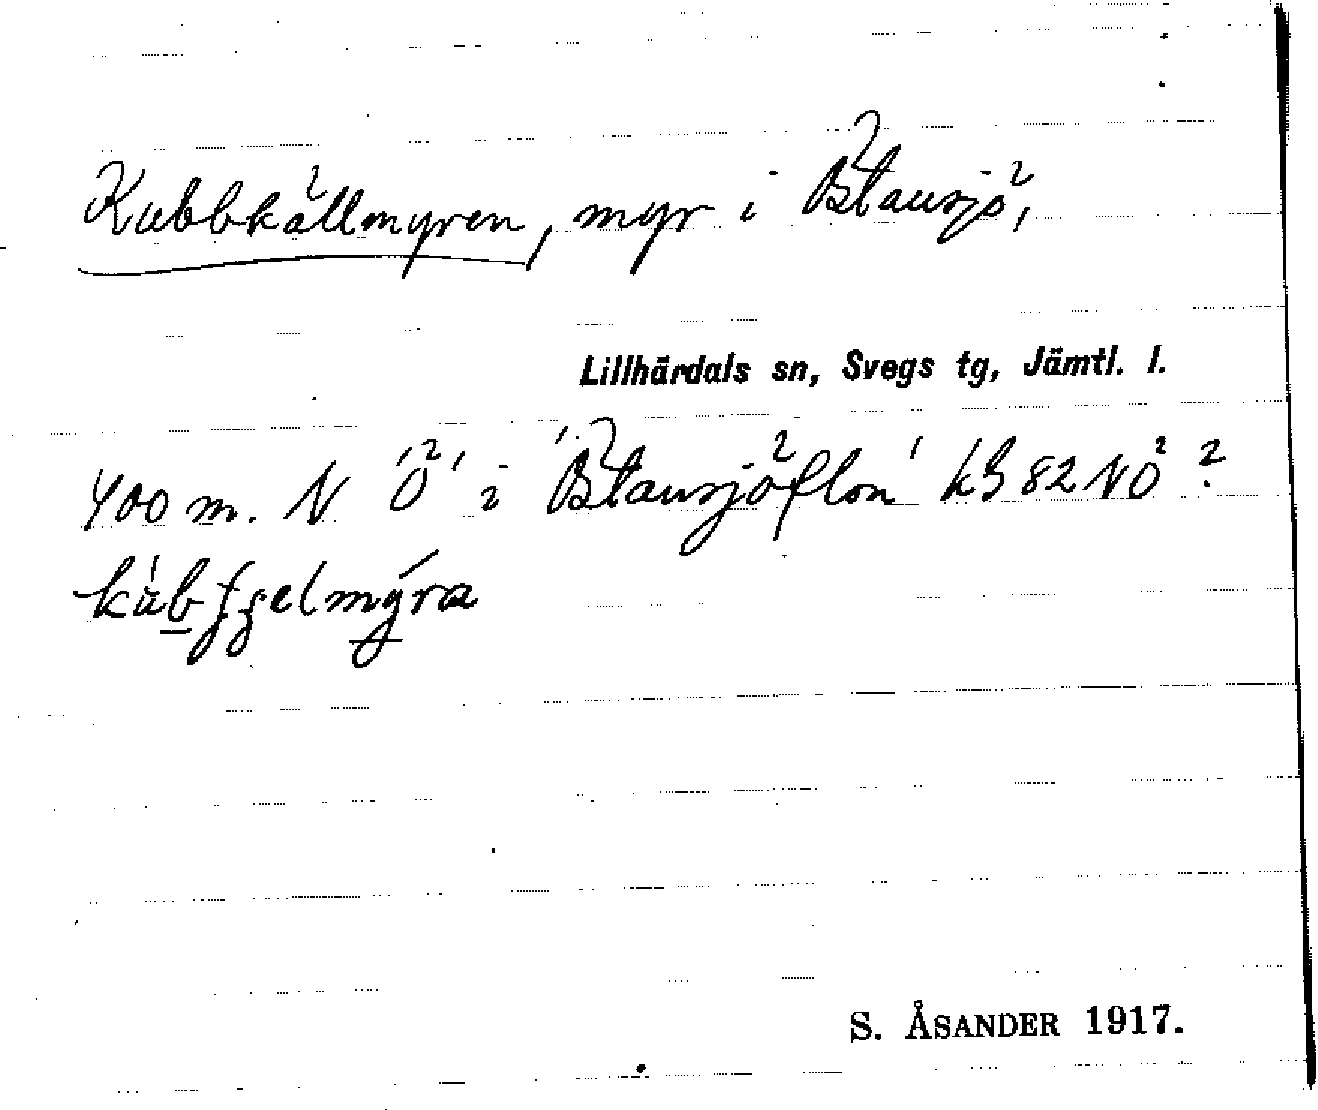 Kubbkällmyren, myr i Blausjö,
Lillhärdals sn, Svegs tg, Jämtl. l.
400 m. N 'Ö' i 'Blausjöflon' kS 82 NÖ ?
S. ÅSANDER 1917.